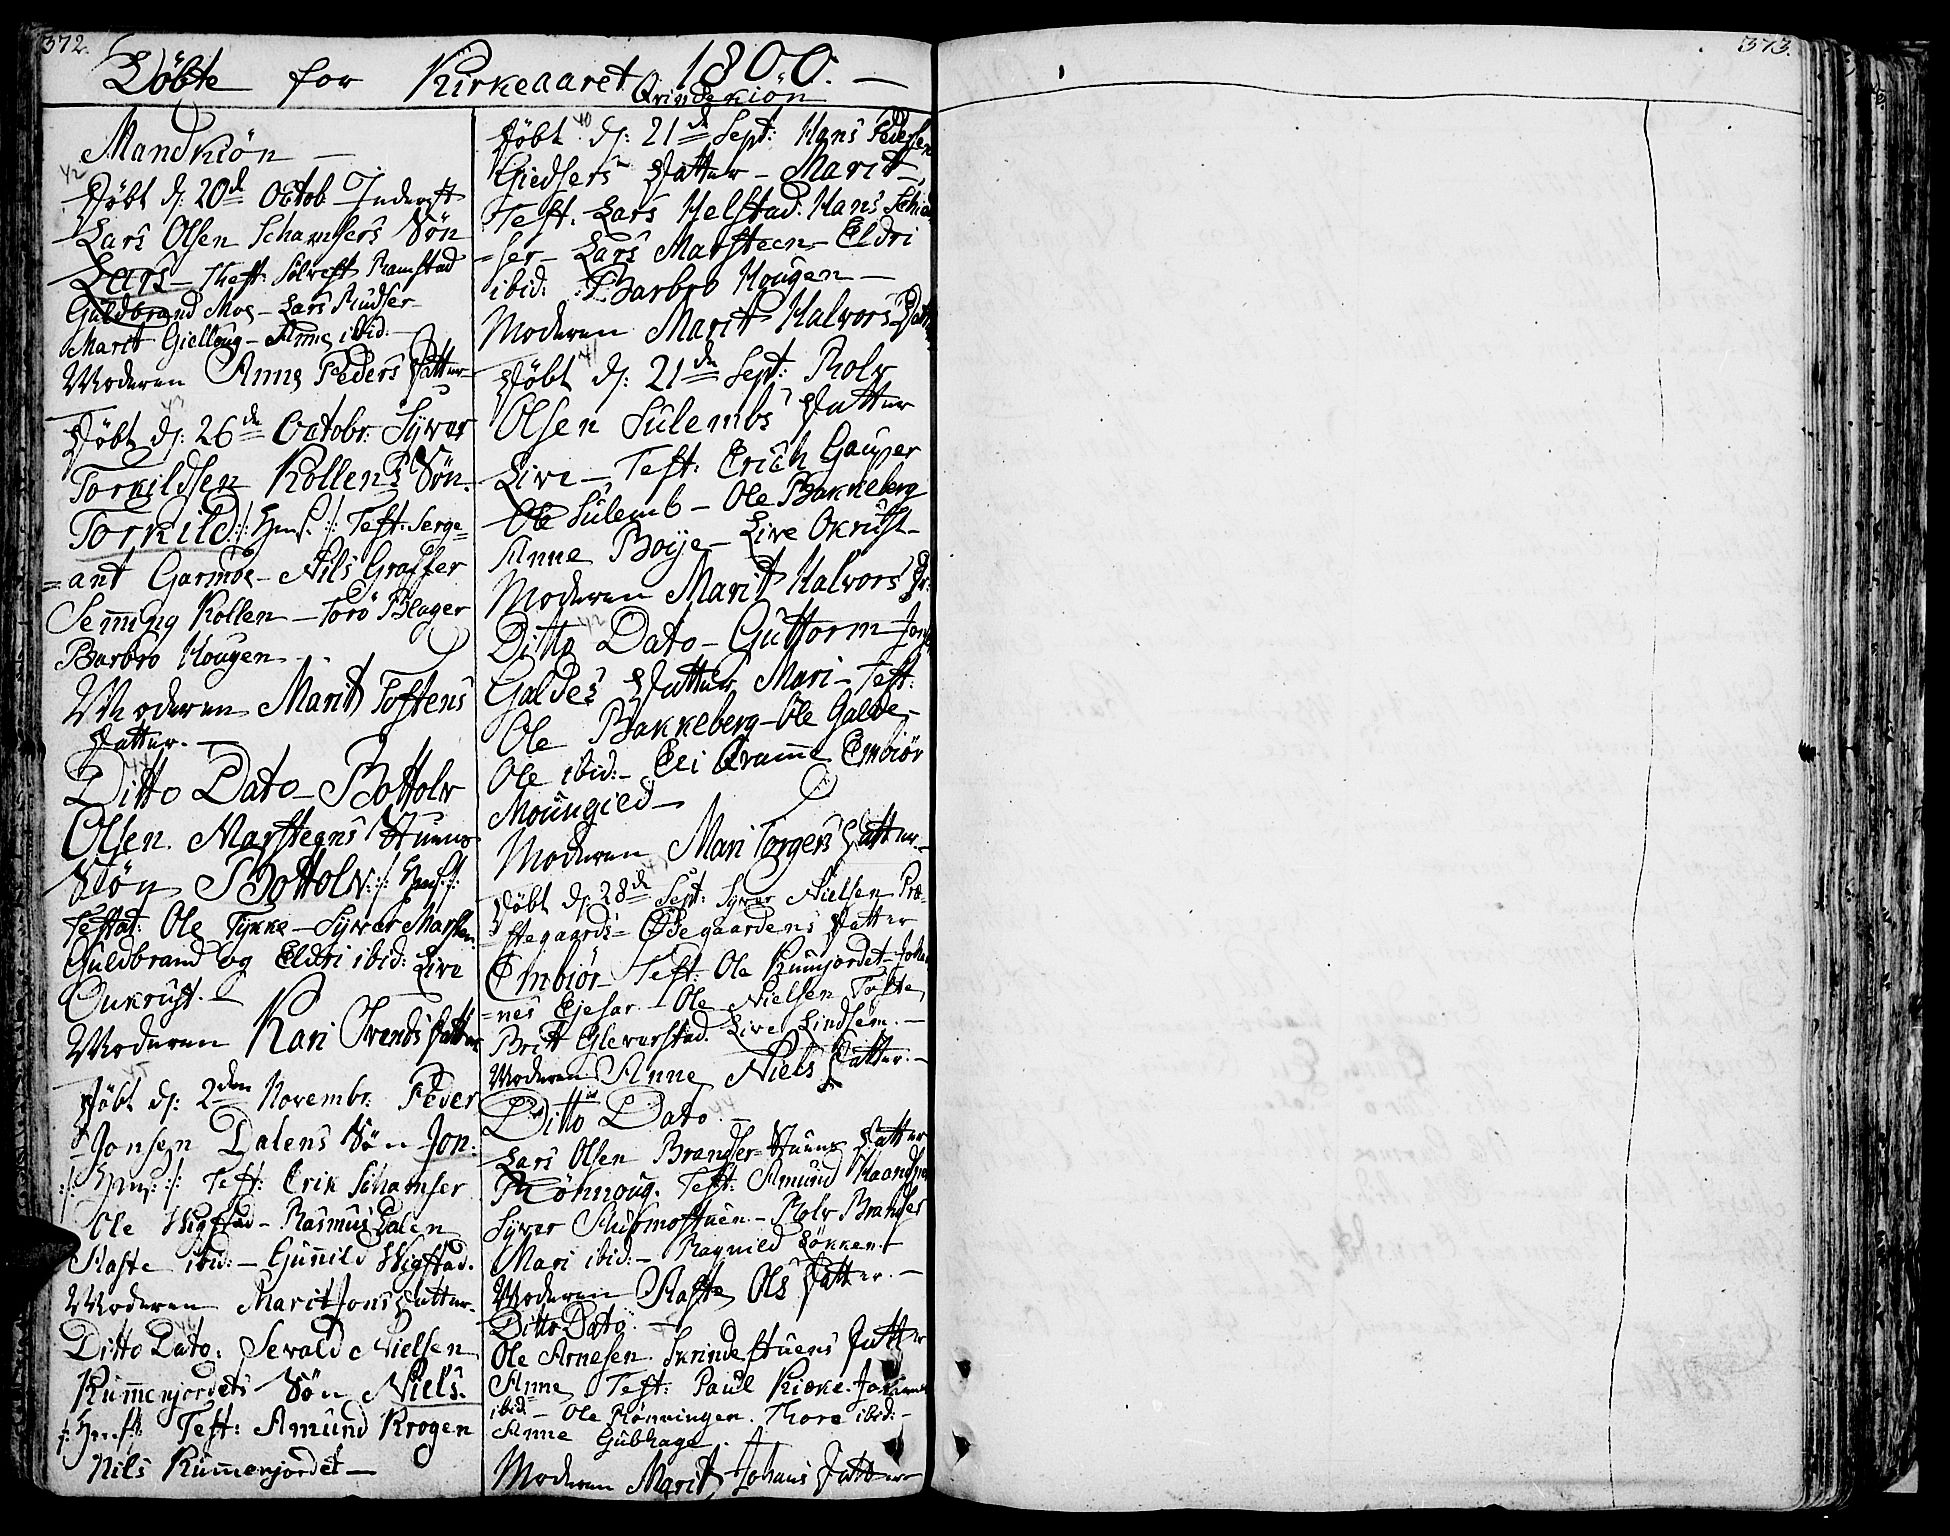 372.
Döbte for Kirkeaaret 1800. —
Mandkiön —
42
Döbt d: 20de Octob Inderst
Lars Olsen Schamsers Sön
Lars — Test: Sölvest Ramstad
Guldbrand Moe — Lars Rudser
Marit Gielloug — Anne ibid: —
Moderen Anne Peders Datter
43
Döbt d: 26de Octobr: Syver
Torkildsen Kollens Sön
Torkild :/: Hms. :/: Test: Serge=
=ant Garmoe — Nils Graffer
Semming Kollen — Torö Blager
Barbro Hougen —
Moderen Marit Tostens
Datter. —
44
Ditto Dato — Bottolv
Olsen Marsteens Stuens
Sön Bottolv :/: Hms. :/:
Testat: Ole Tykke — Syver Marsten
Guldbrand og Eldri ibid: Live
Onkrust.
Moderen Kari Trends Datter
45
Döbt d: 2den Novembr: Peder
Jonsen Dalens Sön Jon.
:/: Hms: :/: Test: Erik Schamser
Ole Wigstad — Rasmus Dalen
Raste ibid: — Gunnild Wigstad.
Moderen Marit Jons Datter.
46
Ditto Dato: Sevald Nielsen
Kummenjordets Sön Niels.
:/: Hms :/: Test: Amund Krogen
Nils Kummenjordet —
Qvindekiön
40
Döbt d: 21de Sept: Hans Pedersen
Giedsers Datter — Marit —
Test. Lars Helstad. Hans Schia
=ser — Lars Marsteen — Eldri
ibid: Barbro Hougen —
Moderen Marit Halvors Datter
41
Döbt d: 21de Sept: Rolv
Olsen Sulembs Datter
Live — Test: Erich Gauper
Ole Sulemb — Ole Bakkeberg
Anne Boye — Live Okrust —
Moderen Marit Halvors Dr:
42
Ditto Dato — Guttorm
Galdes Datter Mari — Test:
Ole Bakkeberg — Ole Galde —
Ole ibid: — Eli Qramme Embiör
Moungied —
Moderen Mari Torgers Datter —
Döbt d: 28de Sept: Syver Nielsen Præ=
=stegaards= Ödegaardens Datter
Embiör — Test: Ole Kumjordet — Johan
=nes Ejesar — Ole Nielsen Tofte
Britt Glevarstad. Live Lindsem. —
Moderen Anne Niels Datter. —
44
Ditto Dato
Lars Olsen Brandser Stuens Datter
Rönnoug. Test: Amund
Syver — Rolv Brandser
Mari ibid: — Ragnild Lökken
Moderen Raste Ols Datter. —
Ditto Dato: —
Ole Arnesen Skrindestuens Datter
Anne Test: Paul Kieke. Johannes
ibid: — Ole Rönningen. Thore ibid: —
Anne Gubhage. —
Moderen Marit Johans Datter
373.